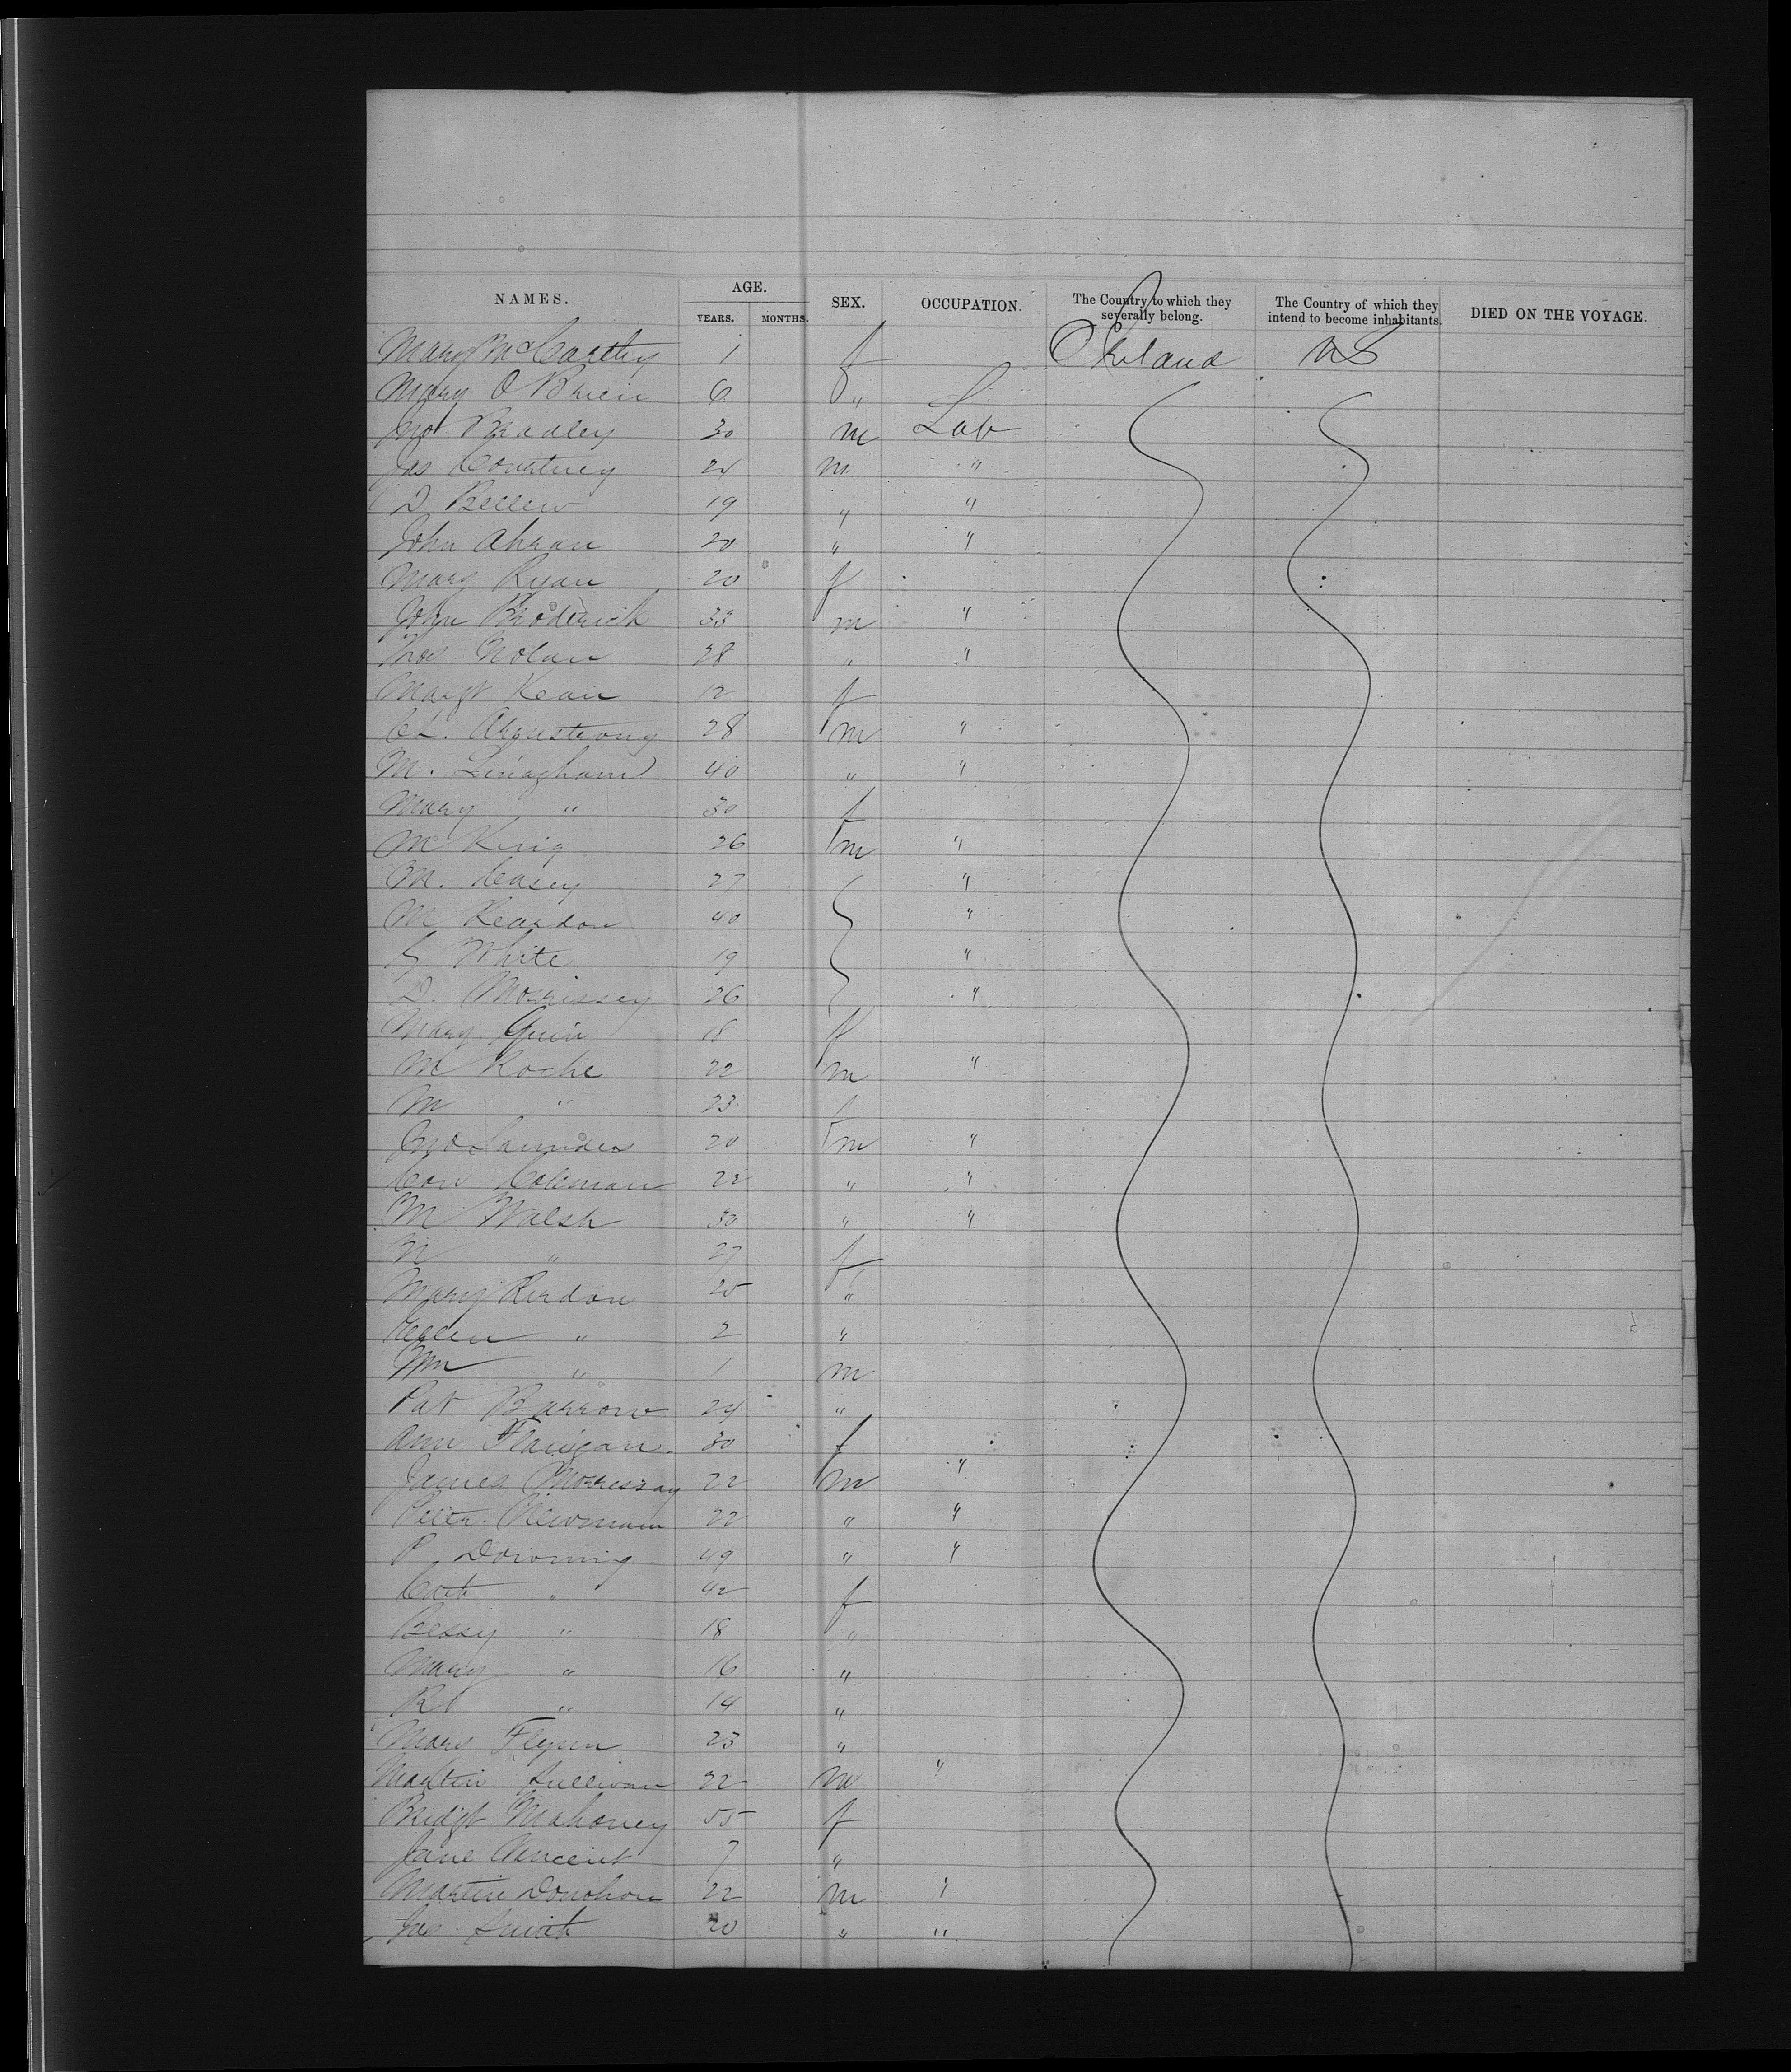 NAMES. AGE. YEARS. MONTHS. SEX. OCCUPATION. The Country to which they severally belong. The Country of which they intend to become inhabitants. DIED ON THE VOYAGE.
Mary McCarthy 1 f Ireland US
Mary O Brien 6 "
Jno Bradley 30 m Lab
Jas Courtney 24 m "
D. Bellew 19 " "
John Ahran 20 " "
Mary Ryan 20 f
John Broderick 33 m "
Thos Nolan 28 " "
Margt Kean 12 f
Armstrong 28 m "
M. Linaghan 40 " "
Mary " 30 f
M King 26 m "
M. Casey 27 "
M Reardon 40 "
White 19 "
D. Morrissey 26 "
Mary Quin 18 f
M Roche 22 m "
M " 23 f
Jno Saunders 20 m "
Con Coleman 22 " "
M Walsh 30 " "
M " 27 f
Mary Rerdon 25 "
Ellen " 2 "
Wm " 1 m
Pat Barrow 24 "
Ann Flanigan 30 f
James Morressay 22 m "
Peter Newmam 22 " "
P. Downing 49 " "
Cath " 42 f
Bessy " 18 "
Mary " 16 "
R " 14 "
Mary Flynn 23 "
Martin Sullivan 22 m "
Bridgt Mahoney 55 f
Jane 7 "
Martin Donohou 22 m "
Jas. Smith 20 " "